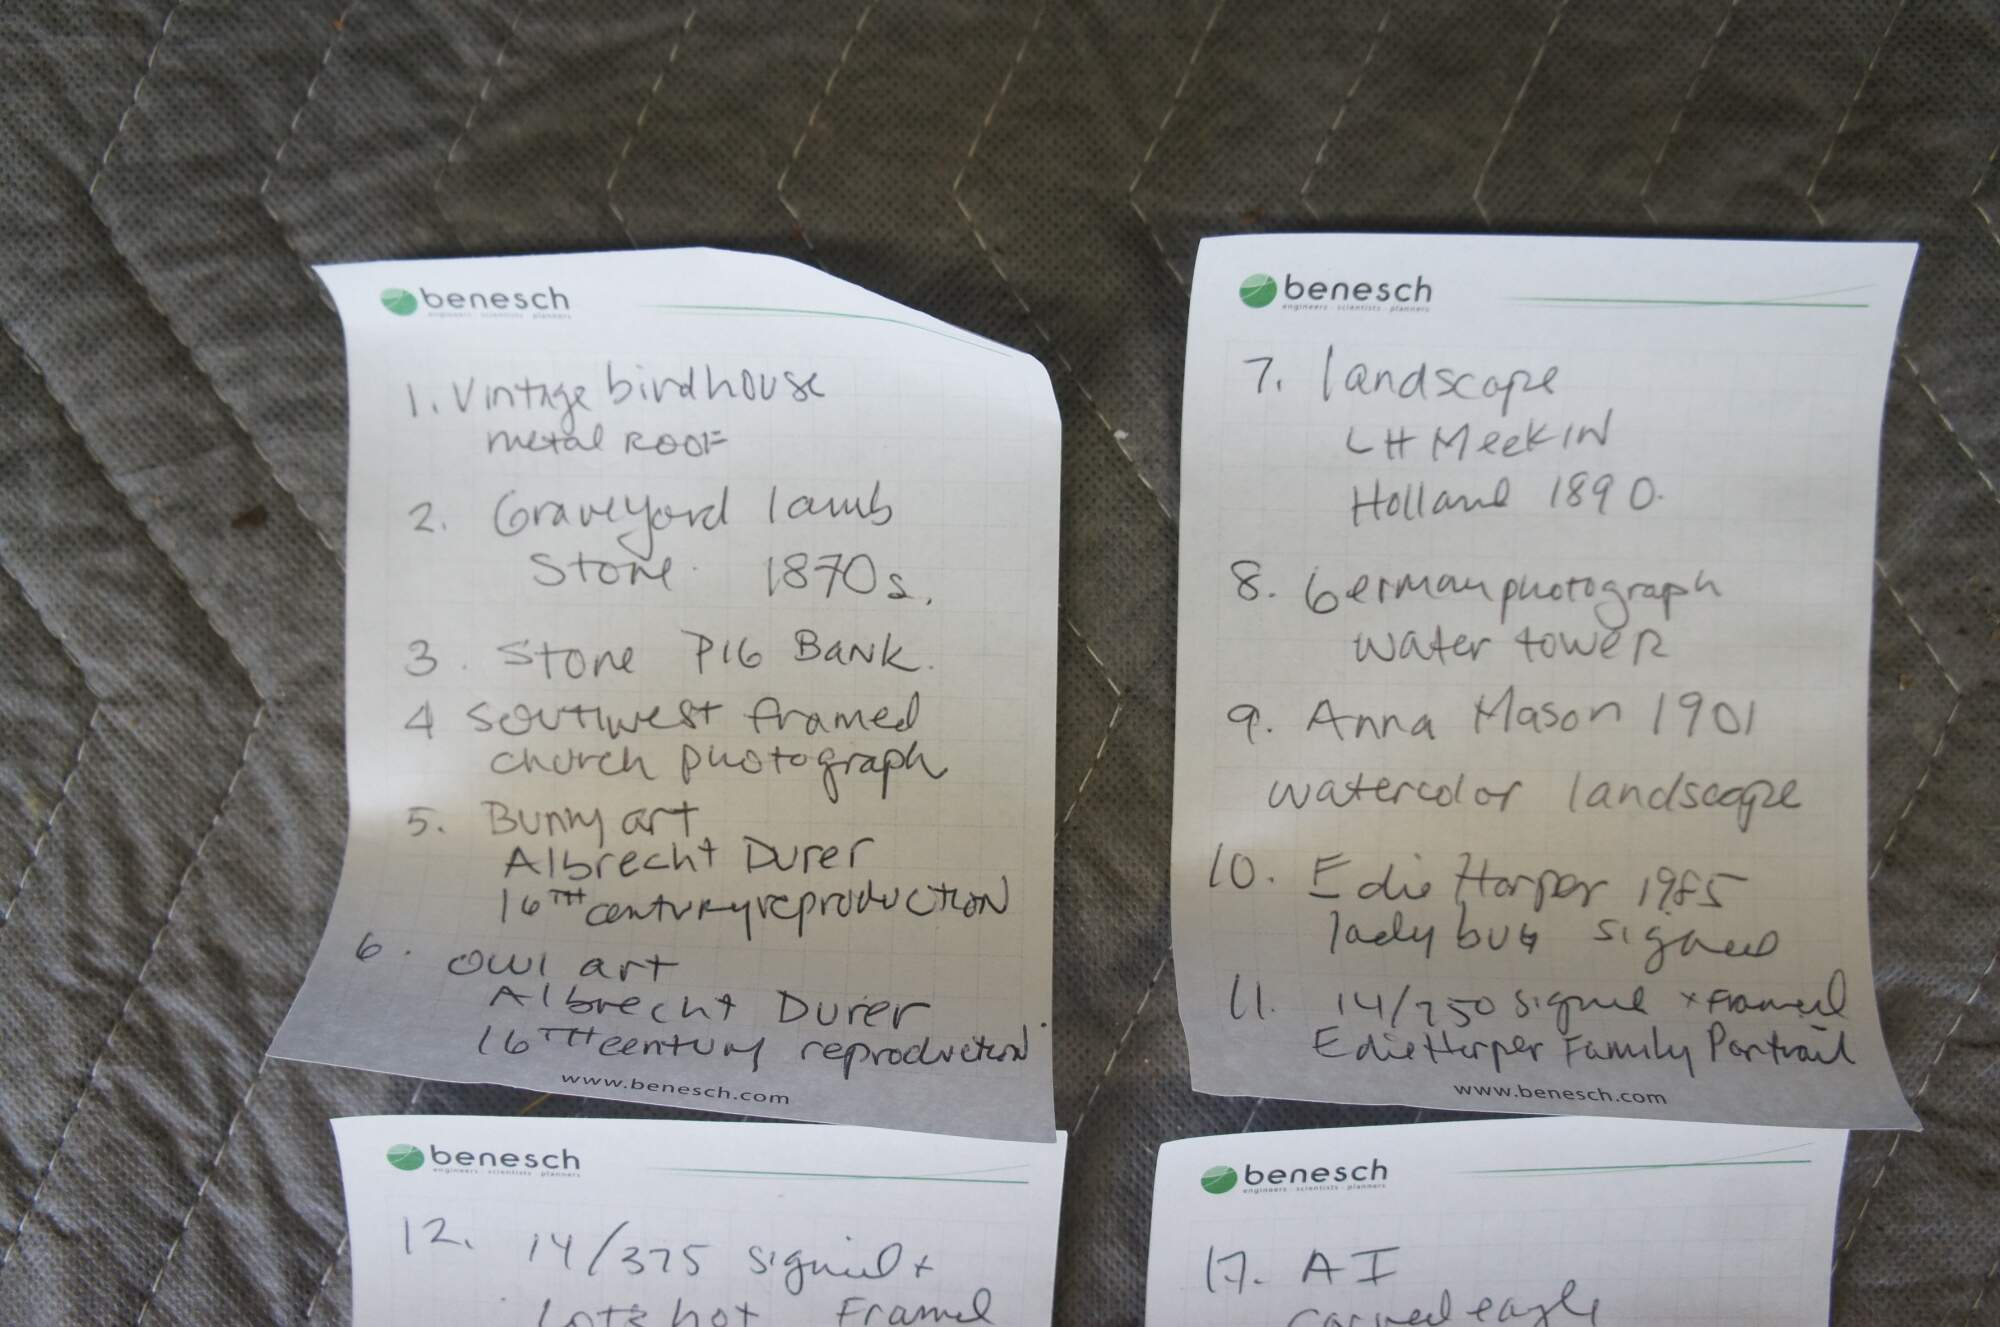 benesch
engineers · scientists · planners
1. Vintage birdhouse
metal ROOF
2. Graveyard lamb
Stone. 1870s.
3. Stone PIG BANK.
4 Southwest framed
church photograph
5. Bunny art
Albrecht Durer
16TH century reproduction
6. owl art
Albrecht Durer
16TH century reproduction
www.benesch.com
benesch
engineers · scientists · planners
7. landscape
LH MeekIN
Holland 1890.
8. German photograph
water tower
9. Anna Mason 1901
watercolor landscape
10. Edie Harper 1985
lady bug signed
11. 14/250 signed + Framed
Edie Harper Family Portrait
www.benesch.com
benesch
engineers · scientists · planners
12. 14/375 signed +
Framed
benesch
engineers · scientists · planners
17. A I
carved eagle